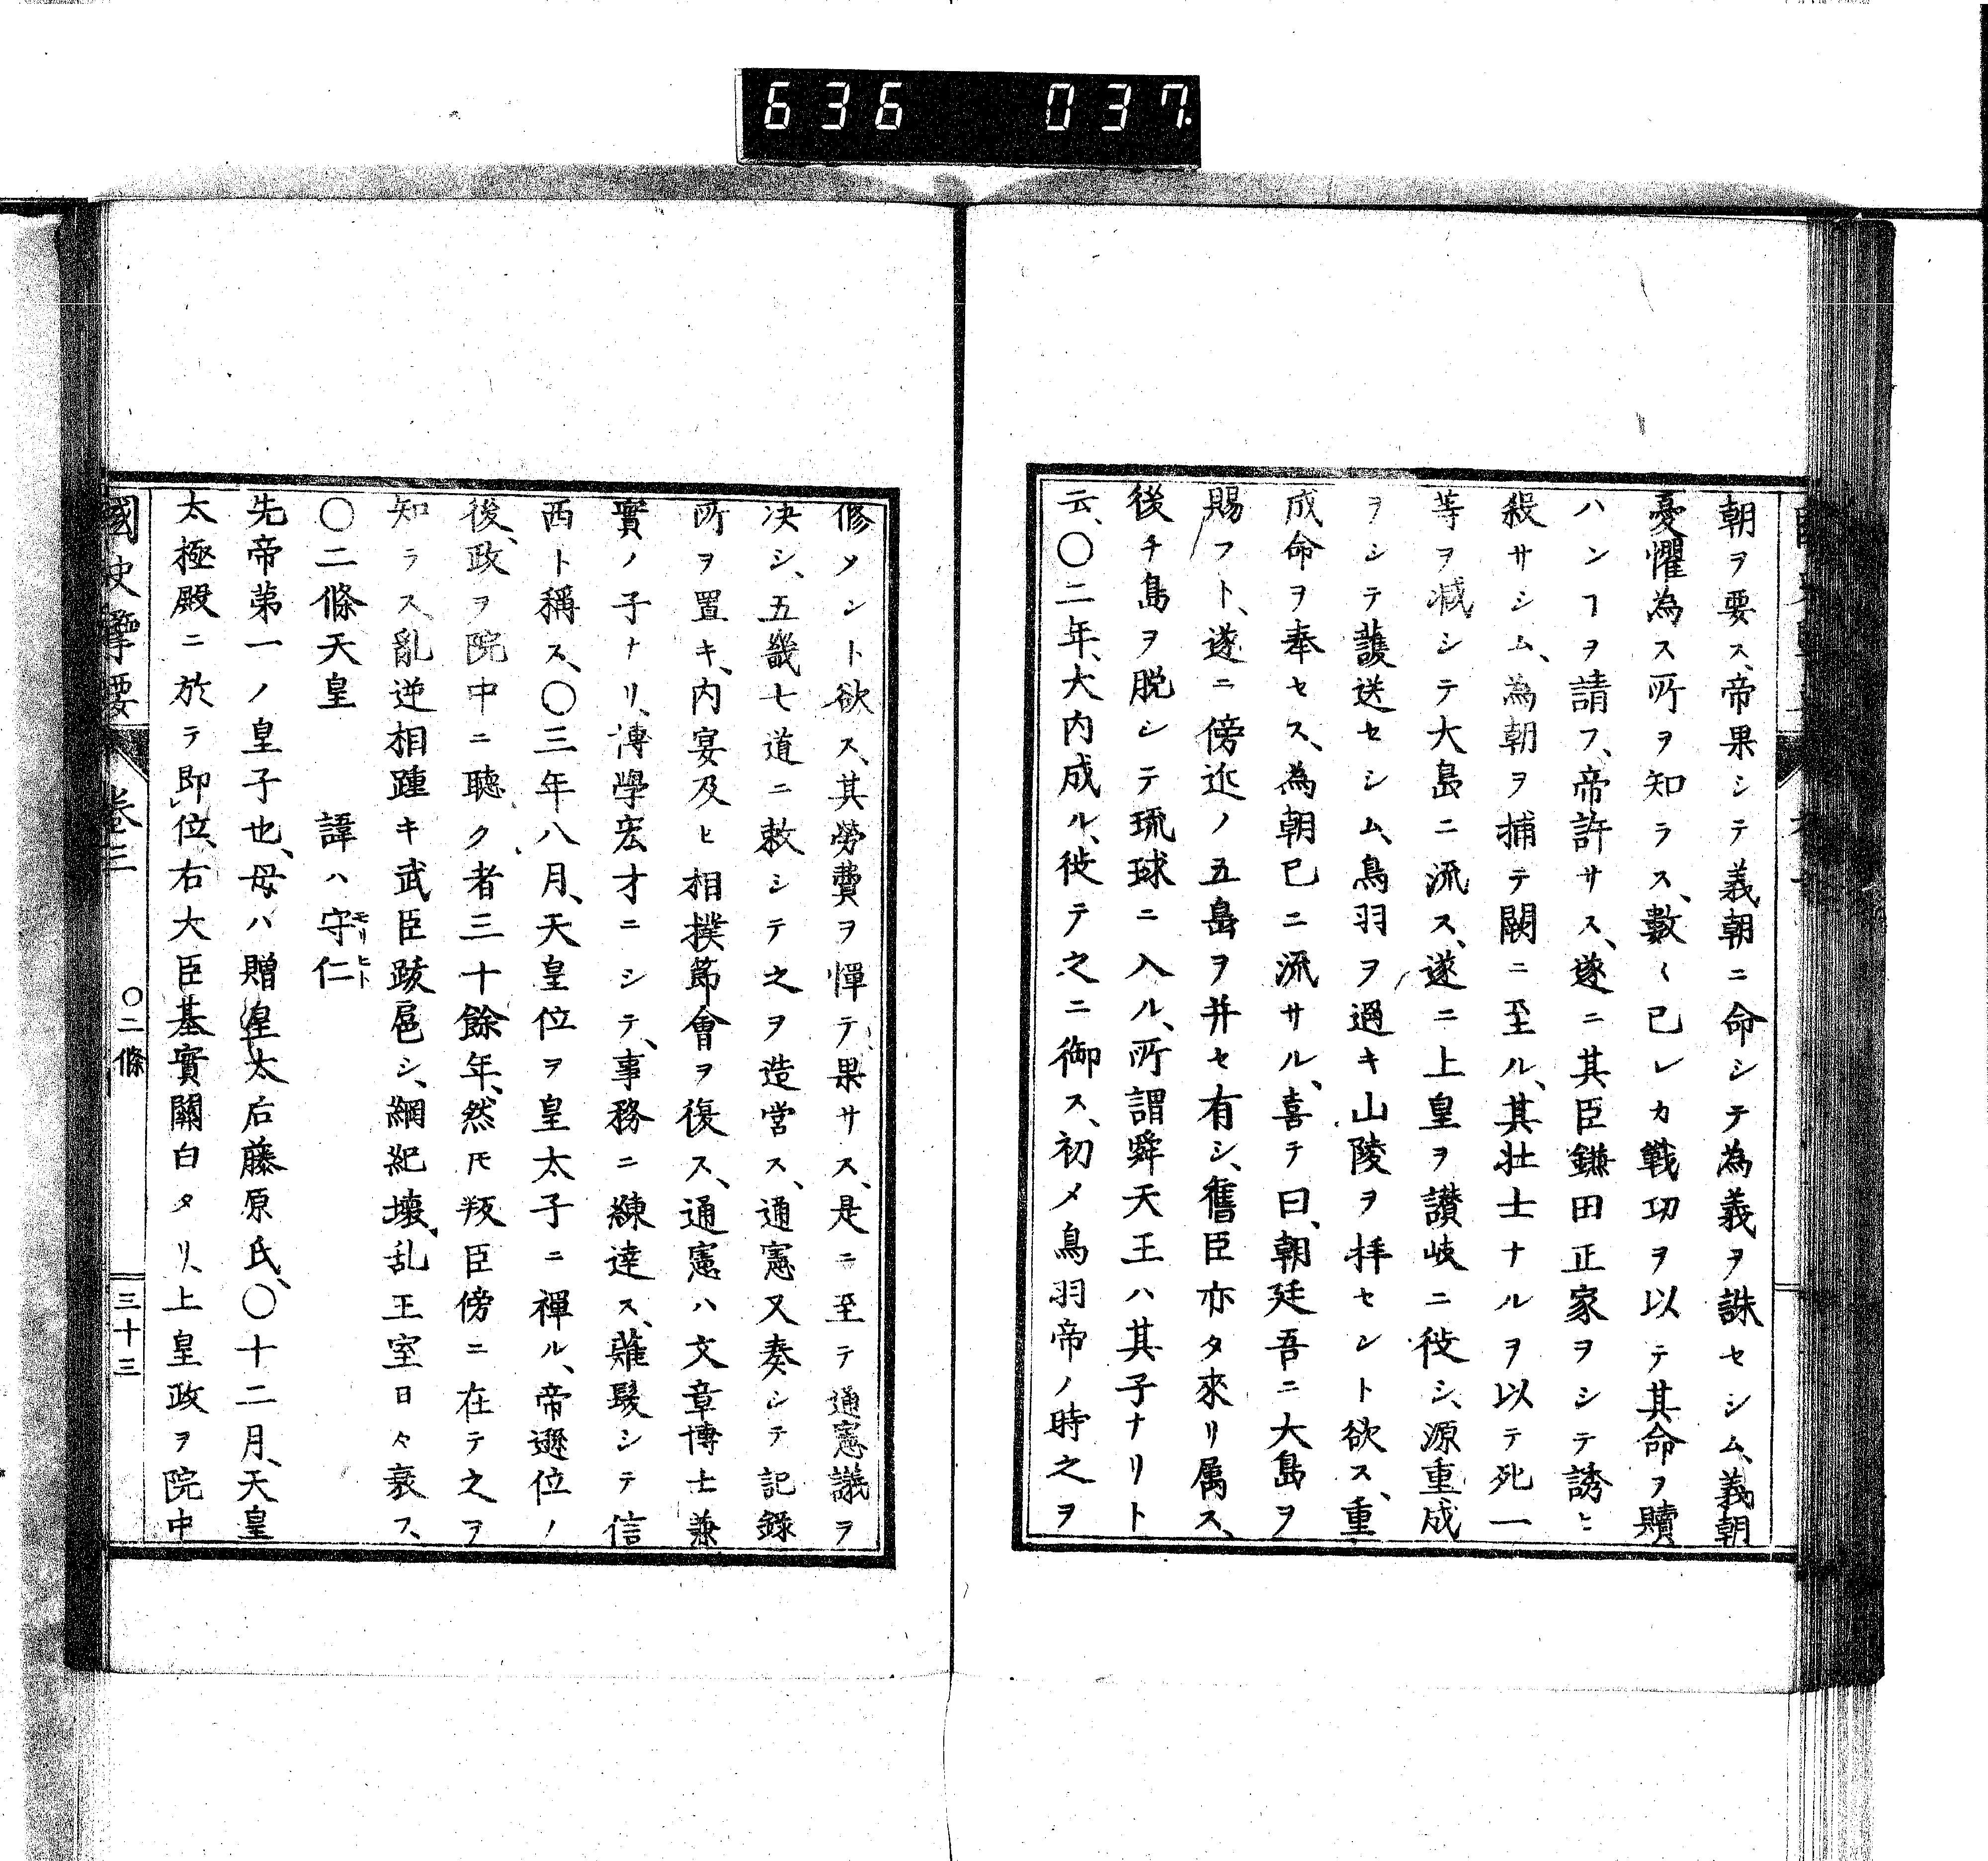 636 037
朝ヲ要ス、帝果シテ義朝ニ命シテ為義ヲ誅セシム、義朝
憂懼為ス所ヲ知ラス、數〱已レカ戰功ヲ以テ其命ヲ贖
ハンヿヲ請フ、帝許サス、遂ニ其臣鎌田正家ヲシテ誘ヒ
殺サシム、為朝ヲ捕テ闕ニ至ル、其壮士ナルヲ以テ死一
等ヲ減シテ大島ニ流ス、遂ニ上皇ヲ讃岐ニ徙シ、源重成
ヲシテ護送セシム、鳥羽ヲ過キ山陵ヲ拝セント欲ス、重
成命ヲ奉セス、為朝已ニ流サル、喜テ曰、朝廷吾ニ大島ヲ
賜フト、遂ニ傍近ノ五島ヲ并セ有シ、舊臣亦タ來リ属ス、
後チ島ヲ脱シテ琉球ニ入ル、所謂舜天王ハ其子ナリト
云、〇二年、大内成ル、徙テ之ニ御ス、初メ鳥羽帝ノ時之ヲ
修メント欲ス、其勞費ヲ憚テ果サス、是ニ至テ通憲議ヲ
决シ、五畿七道ニ敕シテ之ヲ造営ス、通憲又奏シテ記錄
所ヲ置キ、内宴及ヒ相撲節會ヲ復ス、通憲ハ文章博士兼
實ノ子ナリ、博學宏才ニシテ、事務ニ練達ス、薙髮シテ信
西ト稱ス、〇三年八月、天皇位ヲ皇太子ニ禪ル、帝遜位ノ
後、政ヲ院中ニ聽ク者三十餘年、然𪜈叛臣傍ニ在テ之ヲ
知ラス、亂逆相踵キ武臣跋扈シ、綱紀壊乱、王室日々衰フ、
〇二條天皇　諱ハ守仁
モリヒト
先帝第一ノ皇子也、母ハ贈皇太后藤原氏、〇十二月、天皇
太極殿ニ於テ即位、右大臣基實關白タリ、上皇政ヲ院中
國史擥要 卷三 〇二條 三十三